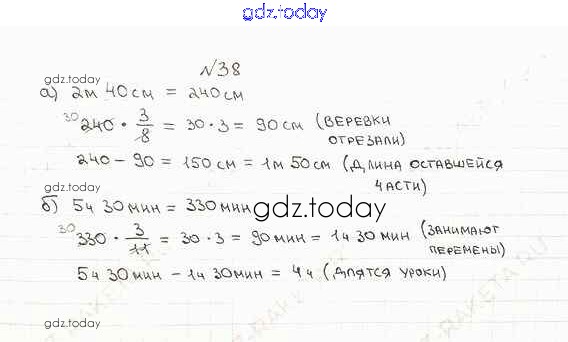 gdz.today
№38
gdz.today
а) 2м 40см = 240см
30
240 · 3/8 = 30 · 3 = 90 см (ВЕРЕВКИ
ОТРЕЗАЛИ)
240 - 90 = 150 см = 1м 50см (ДЛИНА ОСТАВШЕЙСЯ
ЧАСТИ)
gdz.today
б) 5ч 30 мин = 330 мин
gdz.today
30
330 · 3/11 = 30 · 3 = 90 мин = 1ч 30 мин (ЗАНИМАЮТ
ПЕРЕМЕНЫ)
5ч 30 мин - 1ч 30 мин = 4ч (ДЛЯТСЯ УРОКИ)
gdz.today